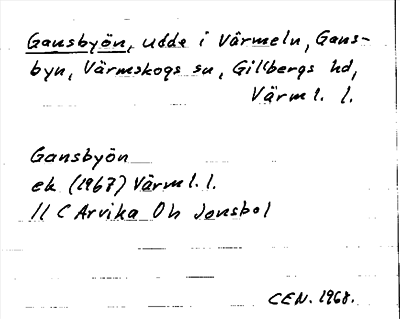 Gansbyön, udde i Värmeln, Gans-
byn, Värmskogs sn, Gillbergs hd,
Värml. l.
Gansbyön
ek (1967) Värml. l.
11 C Arvika Oh Jonsbol
CEN. 1968.